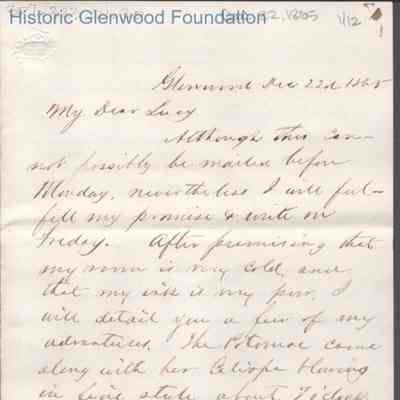 Historic Glenwood Foundation
Dec 22, 1865
1/12
Glenwood Dec 22d 1865
My Dear Lucy
Although this can-
not possibly be mailed before
Monday, nevertheless I will ful-
fill my promise & write on
Friday. After premising that
my room is very cold, and
that my ink is very poor, I
will detail you a few of my
adventures. The Potomac came
along with her Caliope blowing
in fine style about 7 o'clock